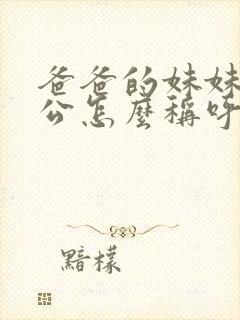 爸爸的妹妹
公怎麼稱呼
黯檬